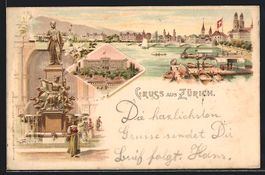 GRUSS AUS ZÜRICH.
Die herzlichsten
Grüsse sendet Dir
Brief folgt. Hans.